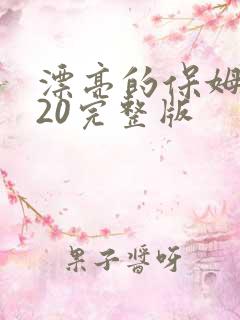 漂亮的保姆
20完整版
果子酱呀